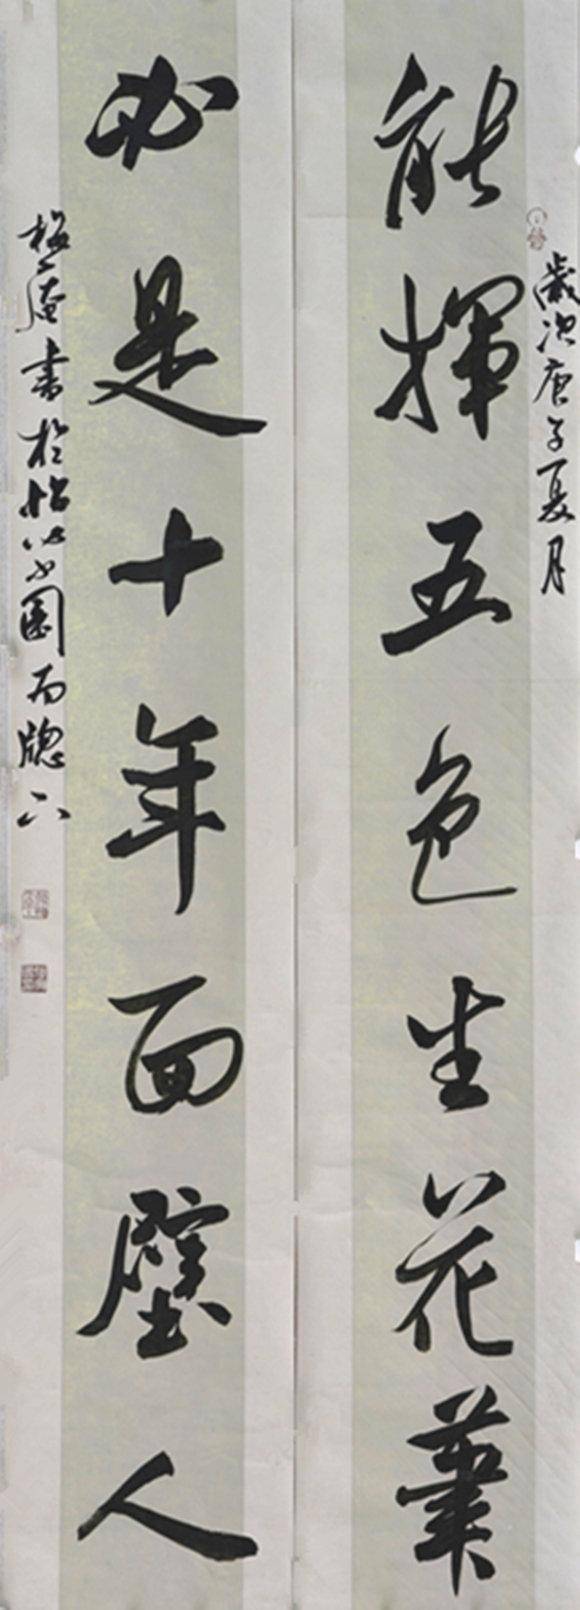 歲次庚子夏月
能揮五色生花筆
必是十年面壁人
梅庵書於怡心小園南牕下